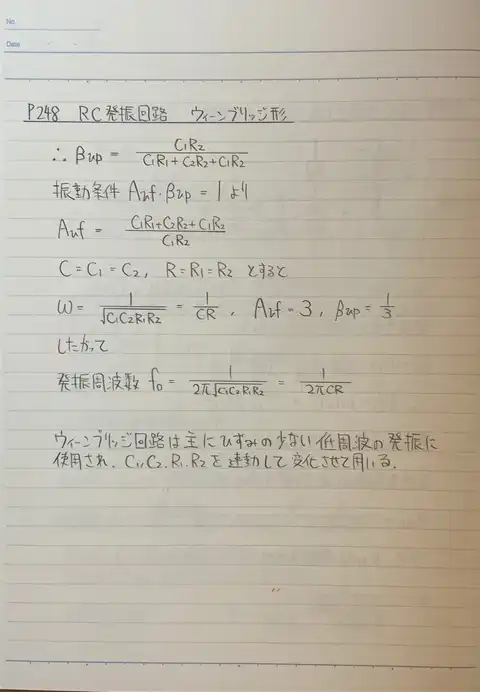 No.
Date
P248 RC発振回路 ウィーンブリッジ形
∴ βvp = C₁R₂ / (C₁R₁ + C₂R₂ + C₁R₂)
振動条件 Avf・βvp = 1 より
Avf = (C₁R₁+C₂R₂+C₁R₂) / C₁R₂
C = C₁ = C₂, R = R₁ = R₂ とすると
ω = 1 / √(C₁C₂R₁R₂) = 1 / CR , Avf = 3, βvp = 1/3
したがって
発振周波数 f₀ = 1 / (2π√(C₁C₂R₁R₂)) = 1 / 2πCR
ウィーンブリッジ回路は主にひずみの少ない低周波の発振に
使用され, C₁,C₂,R₁,R₂を連動して変化させて用いる.